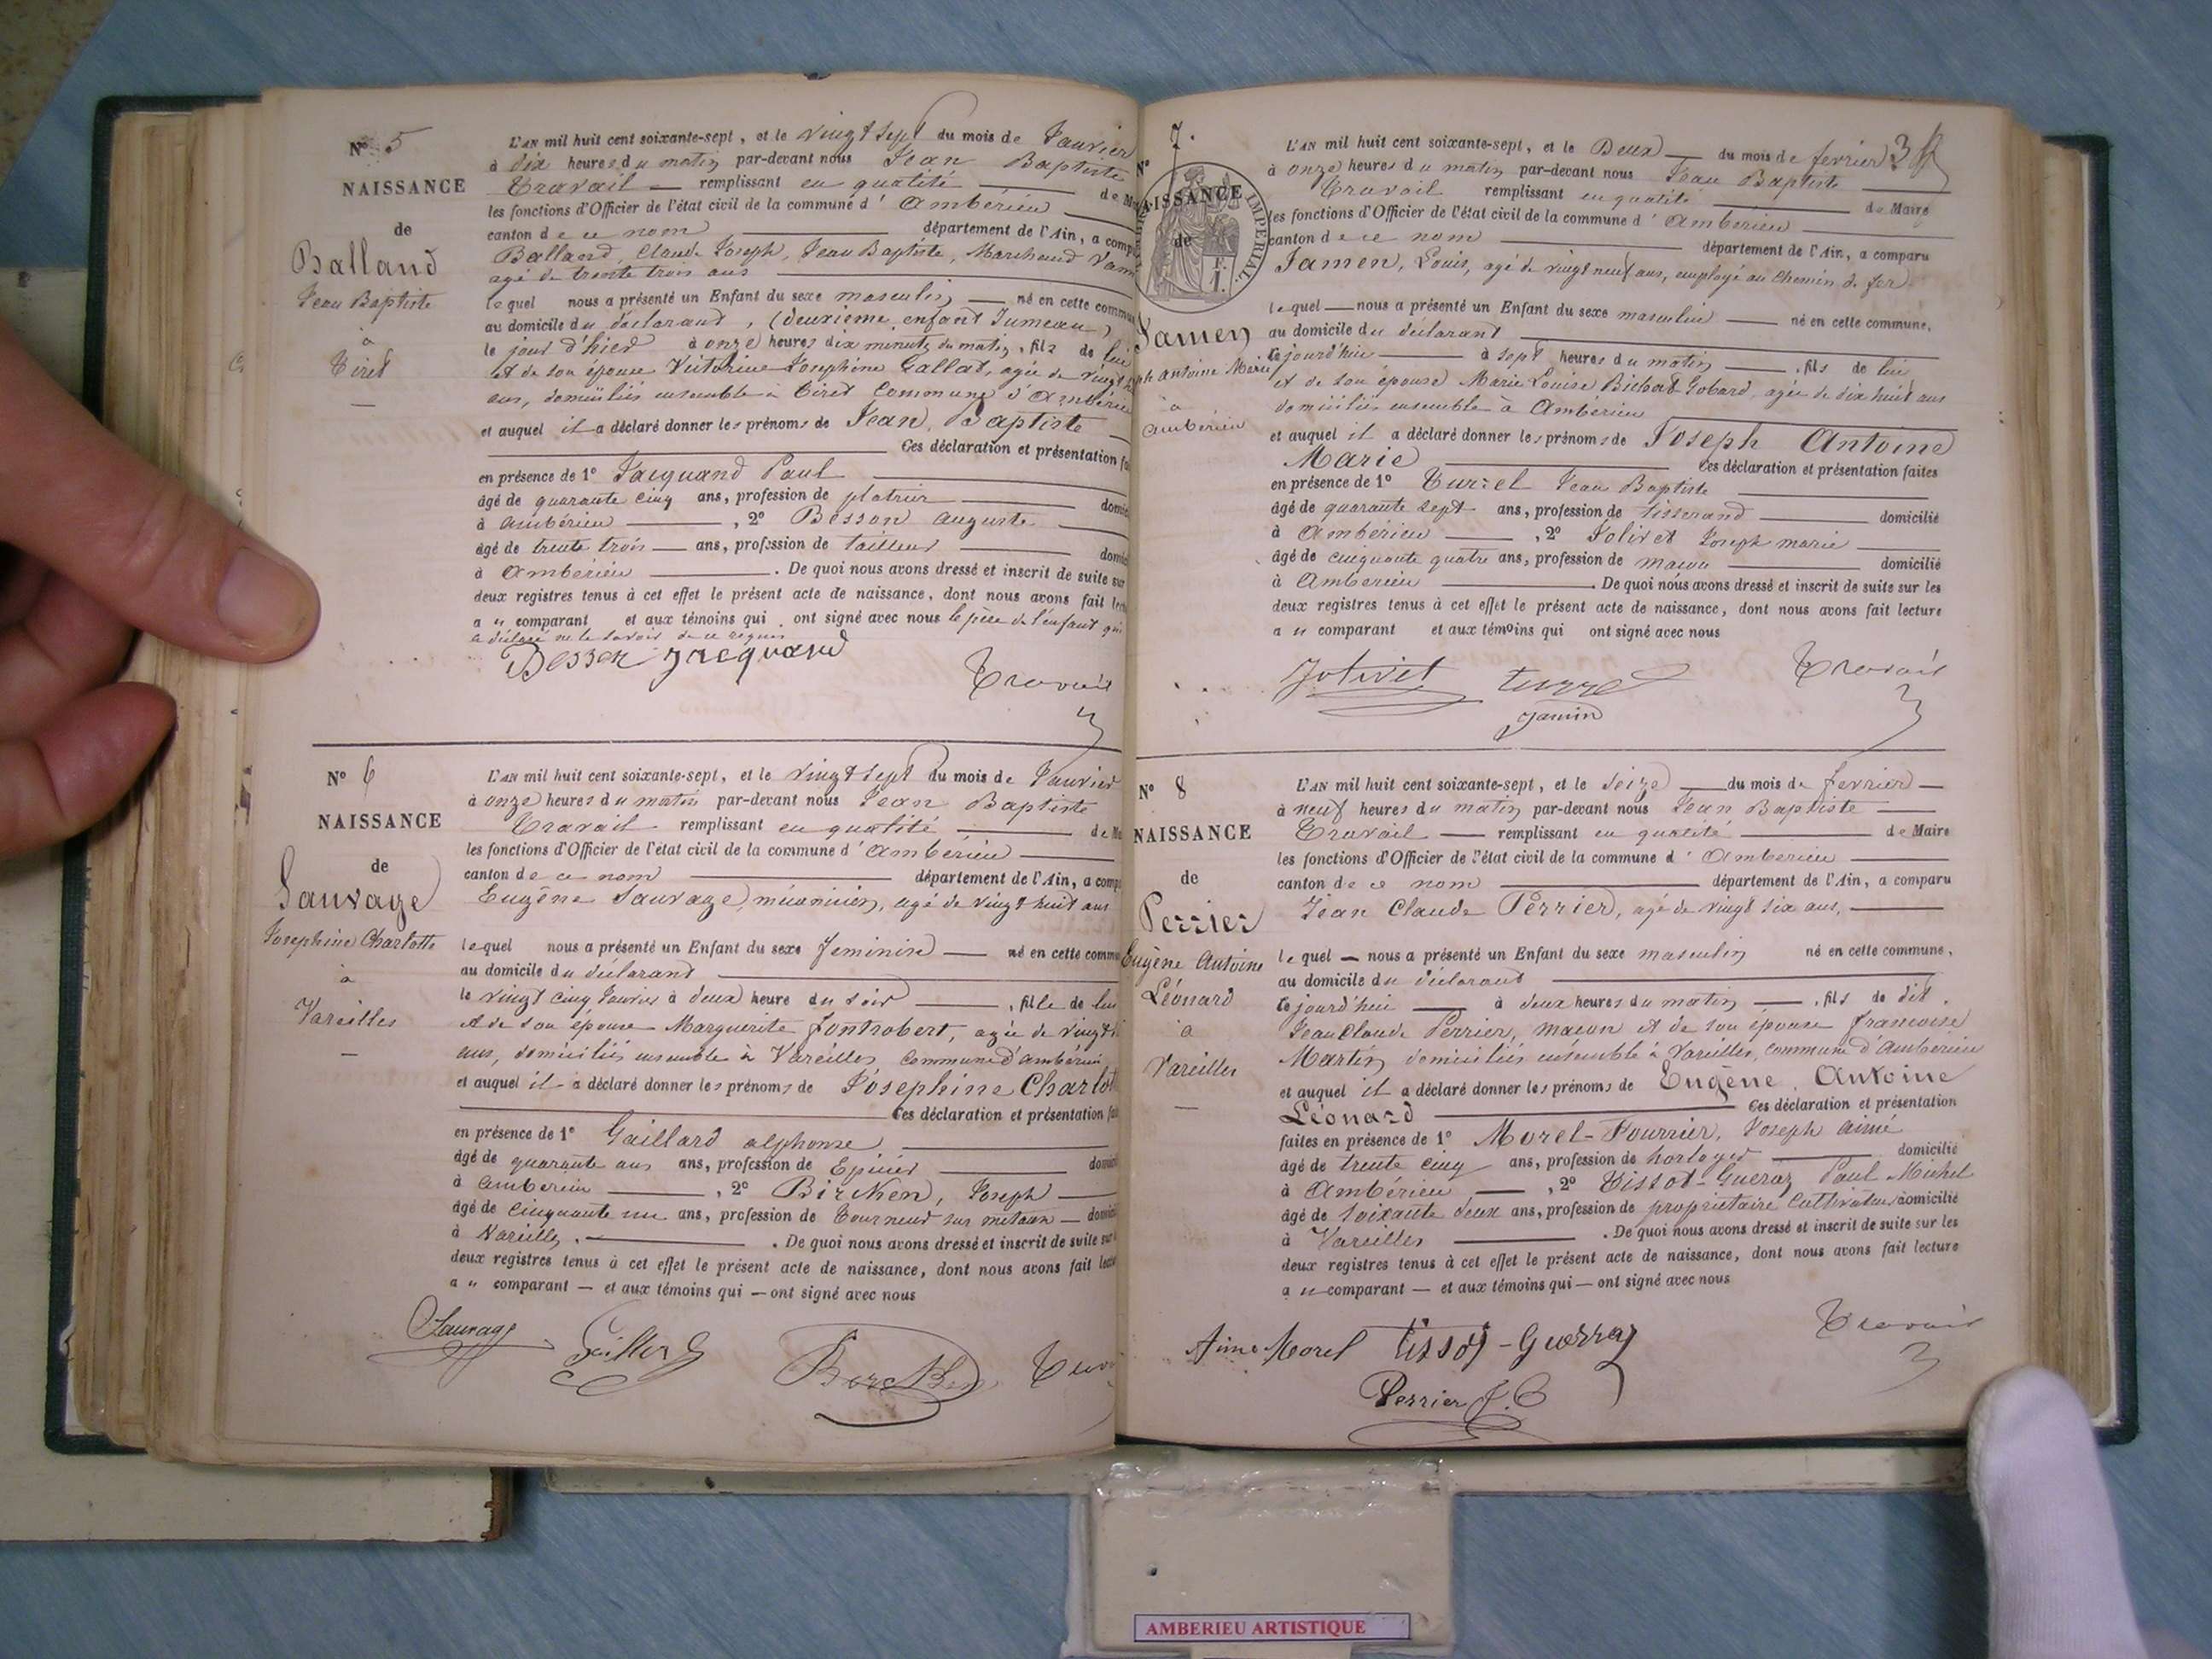 Nº 5
NAISSANCE
de
Balland
Jean Baptiste
à
Tiret
L'AN mil huit cent soixante-sept, et le vingt sept du mois de Janvier
à dix heures du matin par-devant nous Jean Baptiste
Travail remplissant en qualité de
les fonctions d'Officier de l'état civil de la commune d'Ambérieu
canton de ce nom département de l'Ain, a
Balland, Claude Joseph, Jean Baptiste, Marchand
agé de trente trois ans
lequel nous a présenté un Enfant du sexe masculin né en cette
au domicile du déclarant, (deuxième enfant Jumeau)
le jour d'hier à onze heures dix minutes du matin, fils de lui
et de son épouse Victorine Josephine Gallat, agée de
ans, domiciliés ensemble à Tiret Commune d'Ambérieu
et auquel il a déclaré donner les prénoms de Jean, Baptiste
Ces déclaration et présentation
en présence de 1º Jacquand Paul
âgé de quarante cinq ans, profession de platrier
à Ambérieu, 2º Besson Auguste
âgé de trente trois ans, profession de tailleur
à Ambérieu. De quoi nous avons dressé et inscrit de suite sur
deux registres tenus à cet effet le présent acte de naissance, dont nous avons fait
a u comparant et aux témoins qui ont signé avec nous le père de l'enfant qui
a déclaré ne le savoir de ce requis
Besson Jacquand
Travail
Nº 6
NAISSANCE
de
Sauvage
Josephine Charlotte
à
Vareilles
L'AN mil huit cent soixante-sept, et le vingt sept du mois de Janvier
à onze heures du matin par-devant nous Jean Baptiste
Travail remplissant en qualité de
les fonctions d'Officier de l'état civil de la commune d'Ambérieu
canton de ce nom département de l'Ain, a
Eugène Sauvage, mécanicien, agé de vingt huit ans
lequel nous a présenté un Enfant du sexe feminin né en cette
au domicile du déclarant
le vingt cinq Janvier à deux heure du soir, fille de lui
et de son épouse Marguerite Fontrobert, agée de
ans, domiciliés ensemble à Vareilles commune d'Ambérieu
et auquel il a déclaré donner les prénoms de Josephine
Ces déclaration et présentation
en présence de 1º Gaillard alphonse
âgé de quarante ans ans, profession de Epicier
à Amberieu, 2º Birckien, Joseph
âgé de cinquante un ans, profession de Tourneur sur metaux
à Vareilles. De quoi nous avons dressé et inscrit de suite sur
deux registres tenus à cet effet le présent acte de naissance, dont nous avons fait
a u comparant — et aux témoins qui — ont signé avec nous
Sauvage
Gaillard
7.
Nº
NAISSANCE
de
IMPERIAL
Jamen
Antoine Marie
à
Ambérieu
L'AN mil huit cent soixante-sept, et le Deux du mois de fevrier 3
à onze heures du matin par-devant nous Jean Baptiste
Travail remplissant en qualité de Maire
les fonctions d'Officier de l'état civil de la commune d'Ambérieu
canton de ce nom département de l'Ain, a comparu
Jamen, Louis, agé de vingt neuf ans, employé au Chemin de fer
lequel — nous a présenté un Enfant du sexe masculin né en cette commune,
au domicile du déclarant
cejourd'hui à sept heures du matin, fils de lui
et de son épouse Marie Louise Bichat Gobard, agée de dix huit ans
domiciliés ensemble à Ambérieu
et auquel il a déclaré donner les prénoms de Joseph Antoine
Marie Ces déclaration et présentation faites
en présence de 1º Turrel Jean Baptiste
âgé de quarante sept ans, profession de tisserand domicilié
à Ambérieu, 2º Jolivet Joseph marie
âgé de cinquante quatre ans, profession de macon domicilié
à Amberieu. De quoi nous avons dressé et inscrit de suite sur les
deux registres tenus à cet effet le présent acte de naissance, dont nous avons fait lecture
a u comparant et aux témoins qui ont signé avec nous
Jolivet
Jamin
Travail
Nº 8
NAISSANCE
de
Perrier
Eugène Antoine
Léonard
à
Vareilles
L'AN mil huit cent soixante-sept, et le seize du mois de fevrier
à neuf heures du matin par-devant nous Jean Baptiste
Travail remplissant en qualité de Maire
les fonctions d'Officier de l'état civil de la commune d'Amberieu
canton de ce nom département de l'Ain, a comparu
Jean Claude Perrier, agé de vingt six ans,
lequel — nous a présenté un Enfant du sexe masculin né en cette commune,
au domicile du déclarant
cejourd'hui à deux heures du matin, fils de dit
Jean Claude Perrier, macon et de son épouse francoise
Martin domiciliés ensemble à Vareilles, commune d'Amberieu
et auquel il a déclaré donner les prénoms de Eugène, Antoine
Léonard Ces déclaration et présentation
faites en présence de 1º Morel-Fourrier, Joseph aimé
âgé de trente cinq ans, profession de horloger domicilié
à Ambérieu, 2º Tissot-Gueraz Paul Michel
âgé de soixante deux ans, profession de propriétaire Cultivateur domicilié
à Vareilles. De quoi nous avons dressé et inscrit de suite sur les
deux registres tenus à cet effet le présent acte de naissance, dont nous avons fait lecture
a u comparant — et aux témoins qui — ont signé avec nous
Travail
Aimé Morel Tissot-Guerraz
Perrier J. C
AMBERIEU ARTISTIQUE